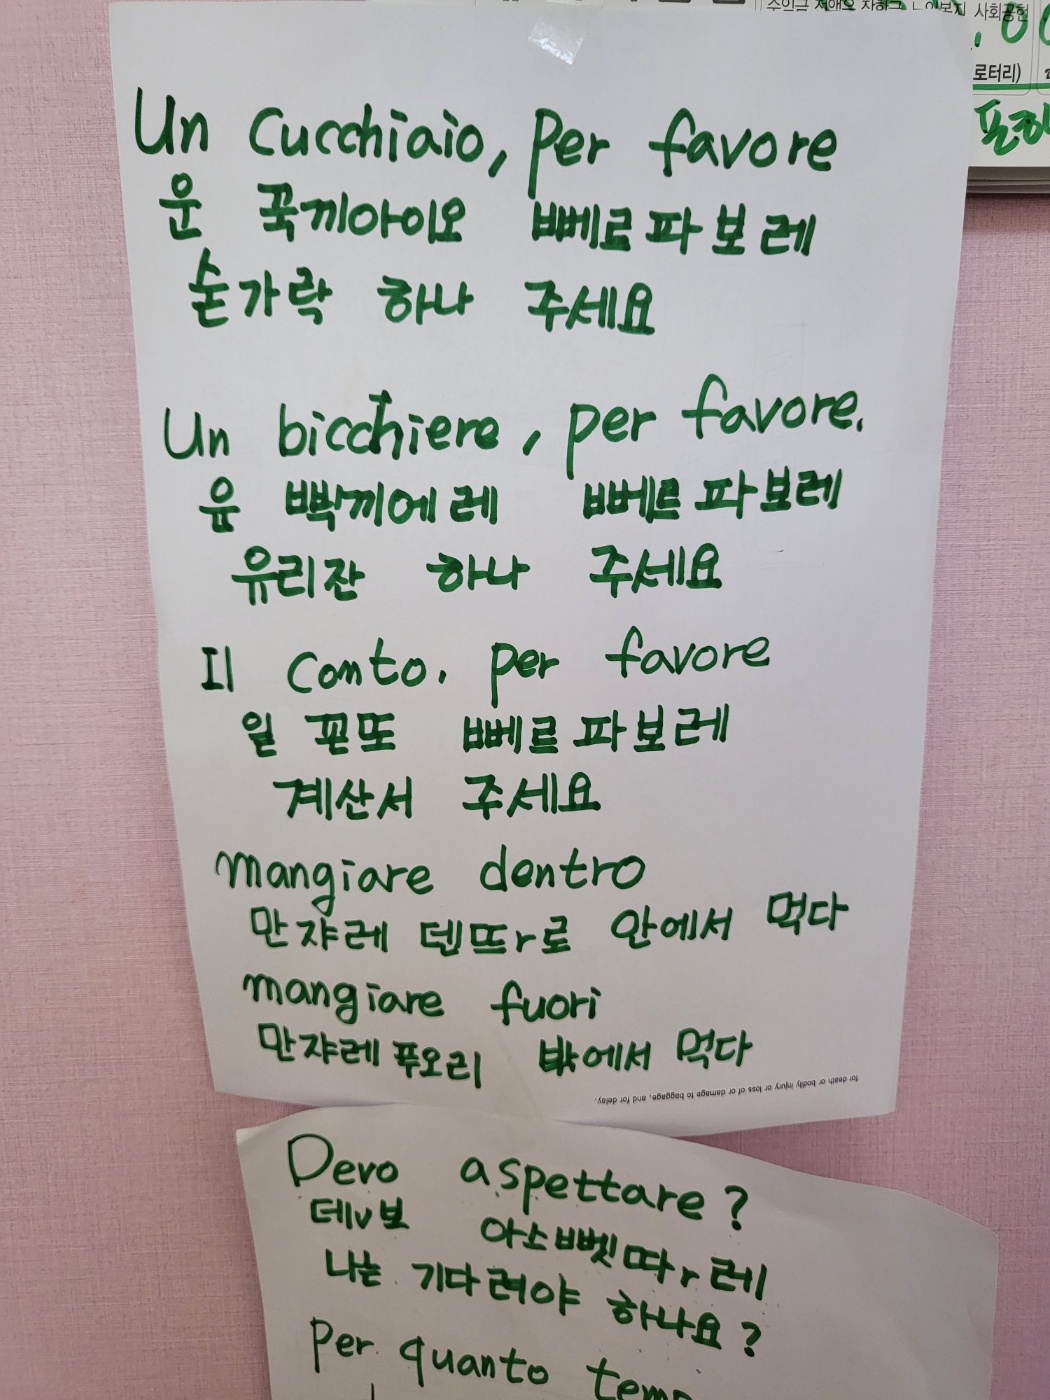 사회공헌
로터리)
Un Cucchiaio, Per favore
운 꾹끼아이오 뻬르파보레
숟가락 하나 주세요
Un bicchiere, per favore.
윤 빡끼에레 뻬르파보레
유리잔 하나 주세요
Il Conto. per favore
일 꼰또 뻬르파보레
계산서 주세요
mangiare dentro
만쟈레 덴뜨r로 안에서 먹다
mangiare fuori
만쟈레 푸오리 밖에서 먹다
for death or bodily injury or loss of or damage to baggage, and for delay.
Devo aspettare?
데v보 아소뻿따r레
나는 기다려야 하나요?
Per quanto temp